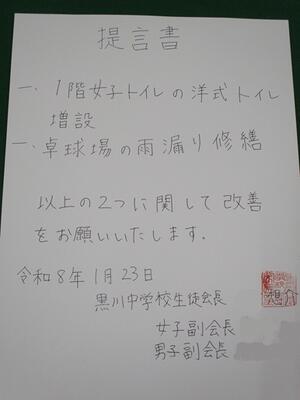 提言書
一、1階女子トイレの洋式トイレ
増設
一、卓球場の雨漏り修繕
以上の2つに関して改善
をお願いいたします。
令和8年1月23日
黒川中学校生徒会長
女子副会長
男子副会長